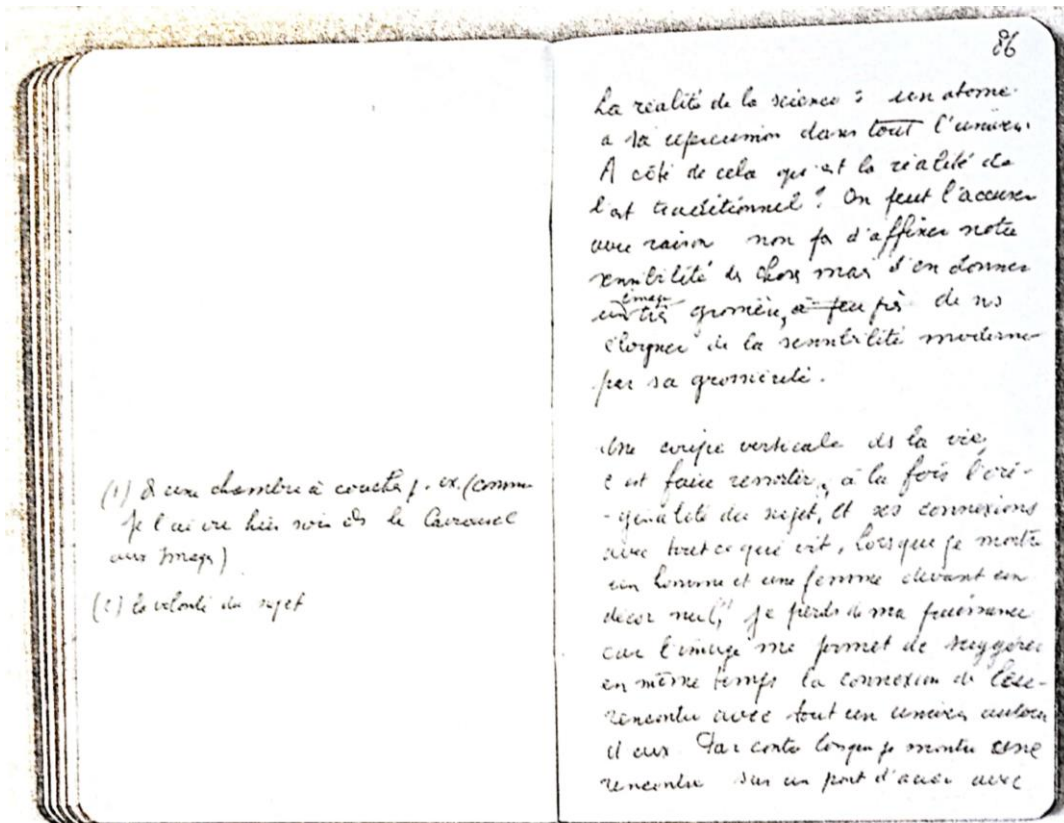 (1) d'une chambre à coucher p. ex. (comme
je l'ai vu hier soir ds le Carrousel
aux Images)
(2) la volonté du sujet
86
La réalité de la science : un atome
a sa répercussion dans tout l'univers.
A côté de cela qu'est la réalité de
l'art traditionnel ? On peut l'accuser
avec raison non pas d'affiner notre
sensibilité des choses mais d'en donner
image
une très grossière, à peu près de ns
éloigner de la sensibilité moderne
par sa grossièreté.
Une coupe verticale ds la vie,
c'est faire ressortir, à la fois l'ori-
-ginalité du sujet, et ses connexions
avec tout ce qui vit, lorsque je montre
un homme et une femme devant un
décor nul, (1) je perds de ma puissance
car l'image me permet de suggérer
en même temps la connexion de leur
rencontre avec tout un univers autour
d'eux. Par contre lorsque je montre une
rencontre sur un pont d'acier avec